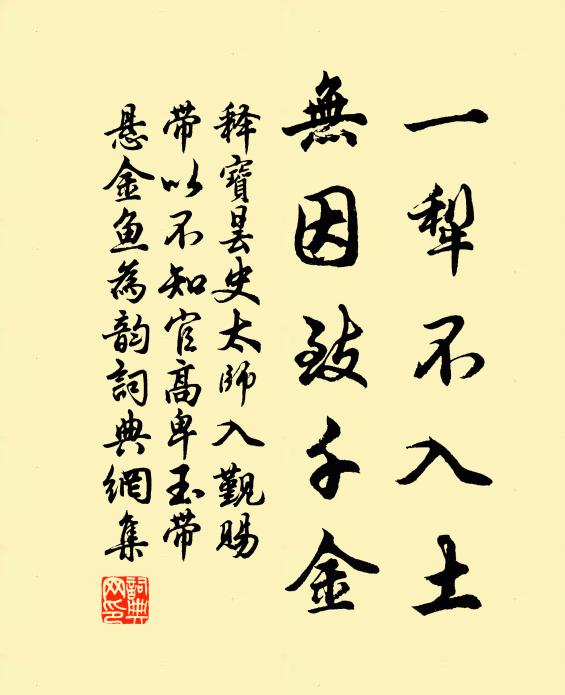 一犁不入土
無因致千金
释寶曇史太師入觐賜
帶以不知官高卑玉帶
悬金鱼為韵詞典網集
詞典网印